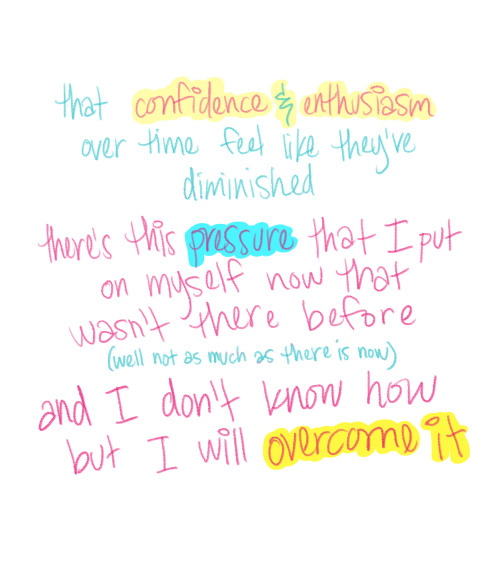 that confidence & enthusiasm
over time feel like they've
diminished
there's this pressure that I put
on myself now that
wasn't there before
(well not as much as there is now)
and I don't know how
but I will overcome it